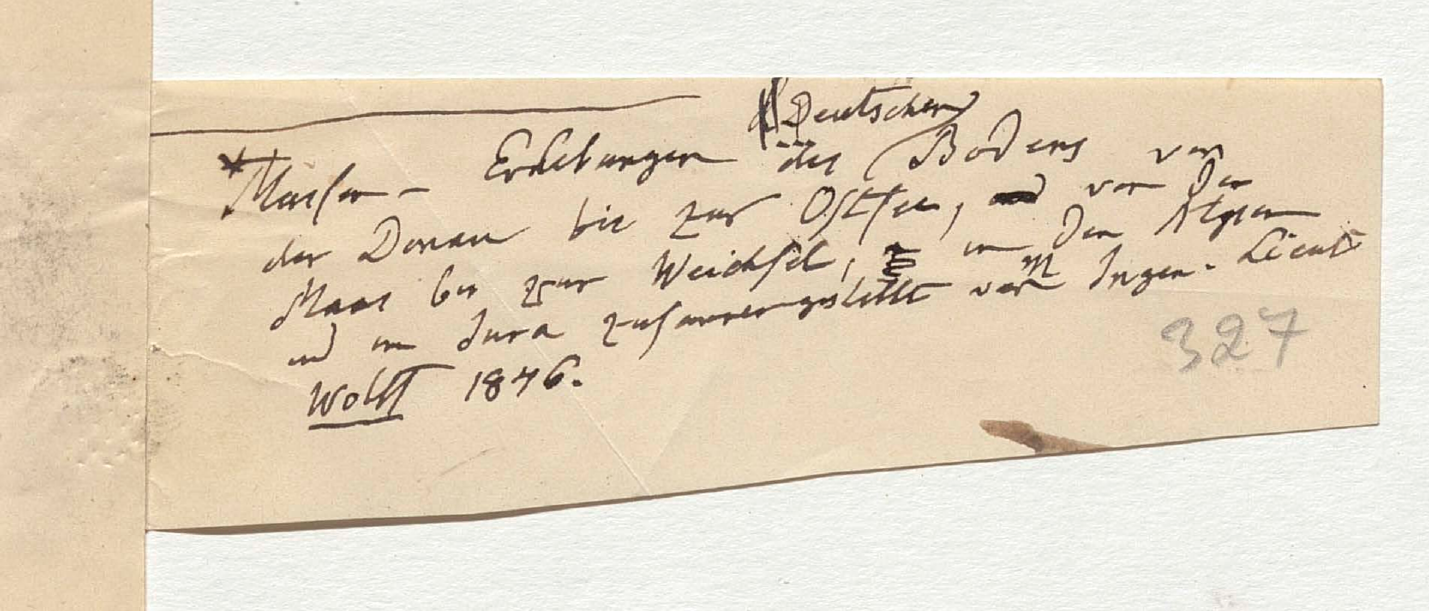 Deutschen
* Massen-Erhebungen des Bodens von
der Donau bis zur Ostsee, von der
Maas bis zur Weichsel, in den Alpen
und im Jura zusammengestellt vom Ingen. Lieut
Wolff 1846.
327